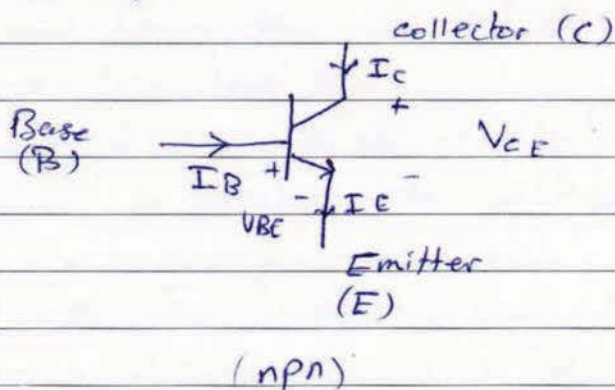 collector (C)
I_C
+
Base
(B)
V_CE
I_B + -
- I_E
V_BE
Emitter
(E)
(npn)